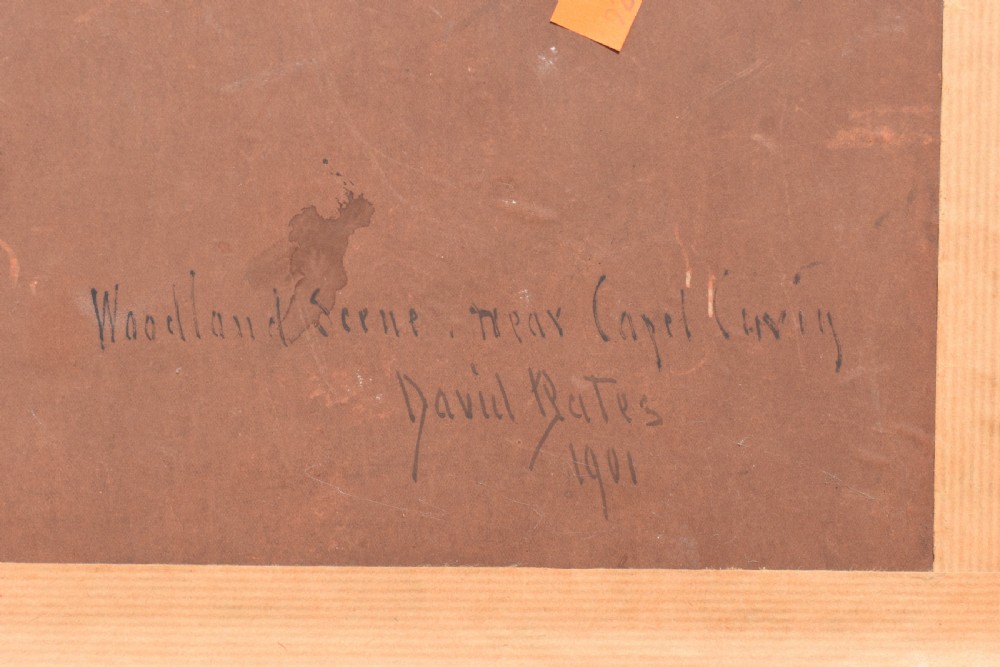 Woodland Scene. near Capel Curig
David Bates
1901